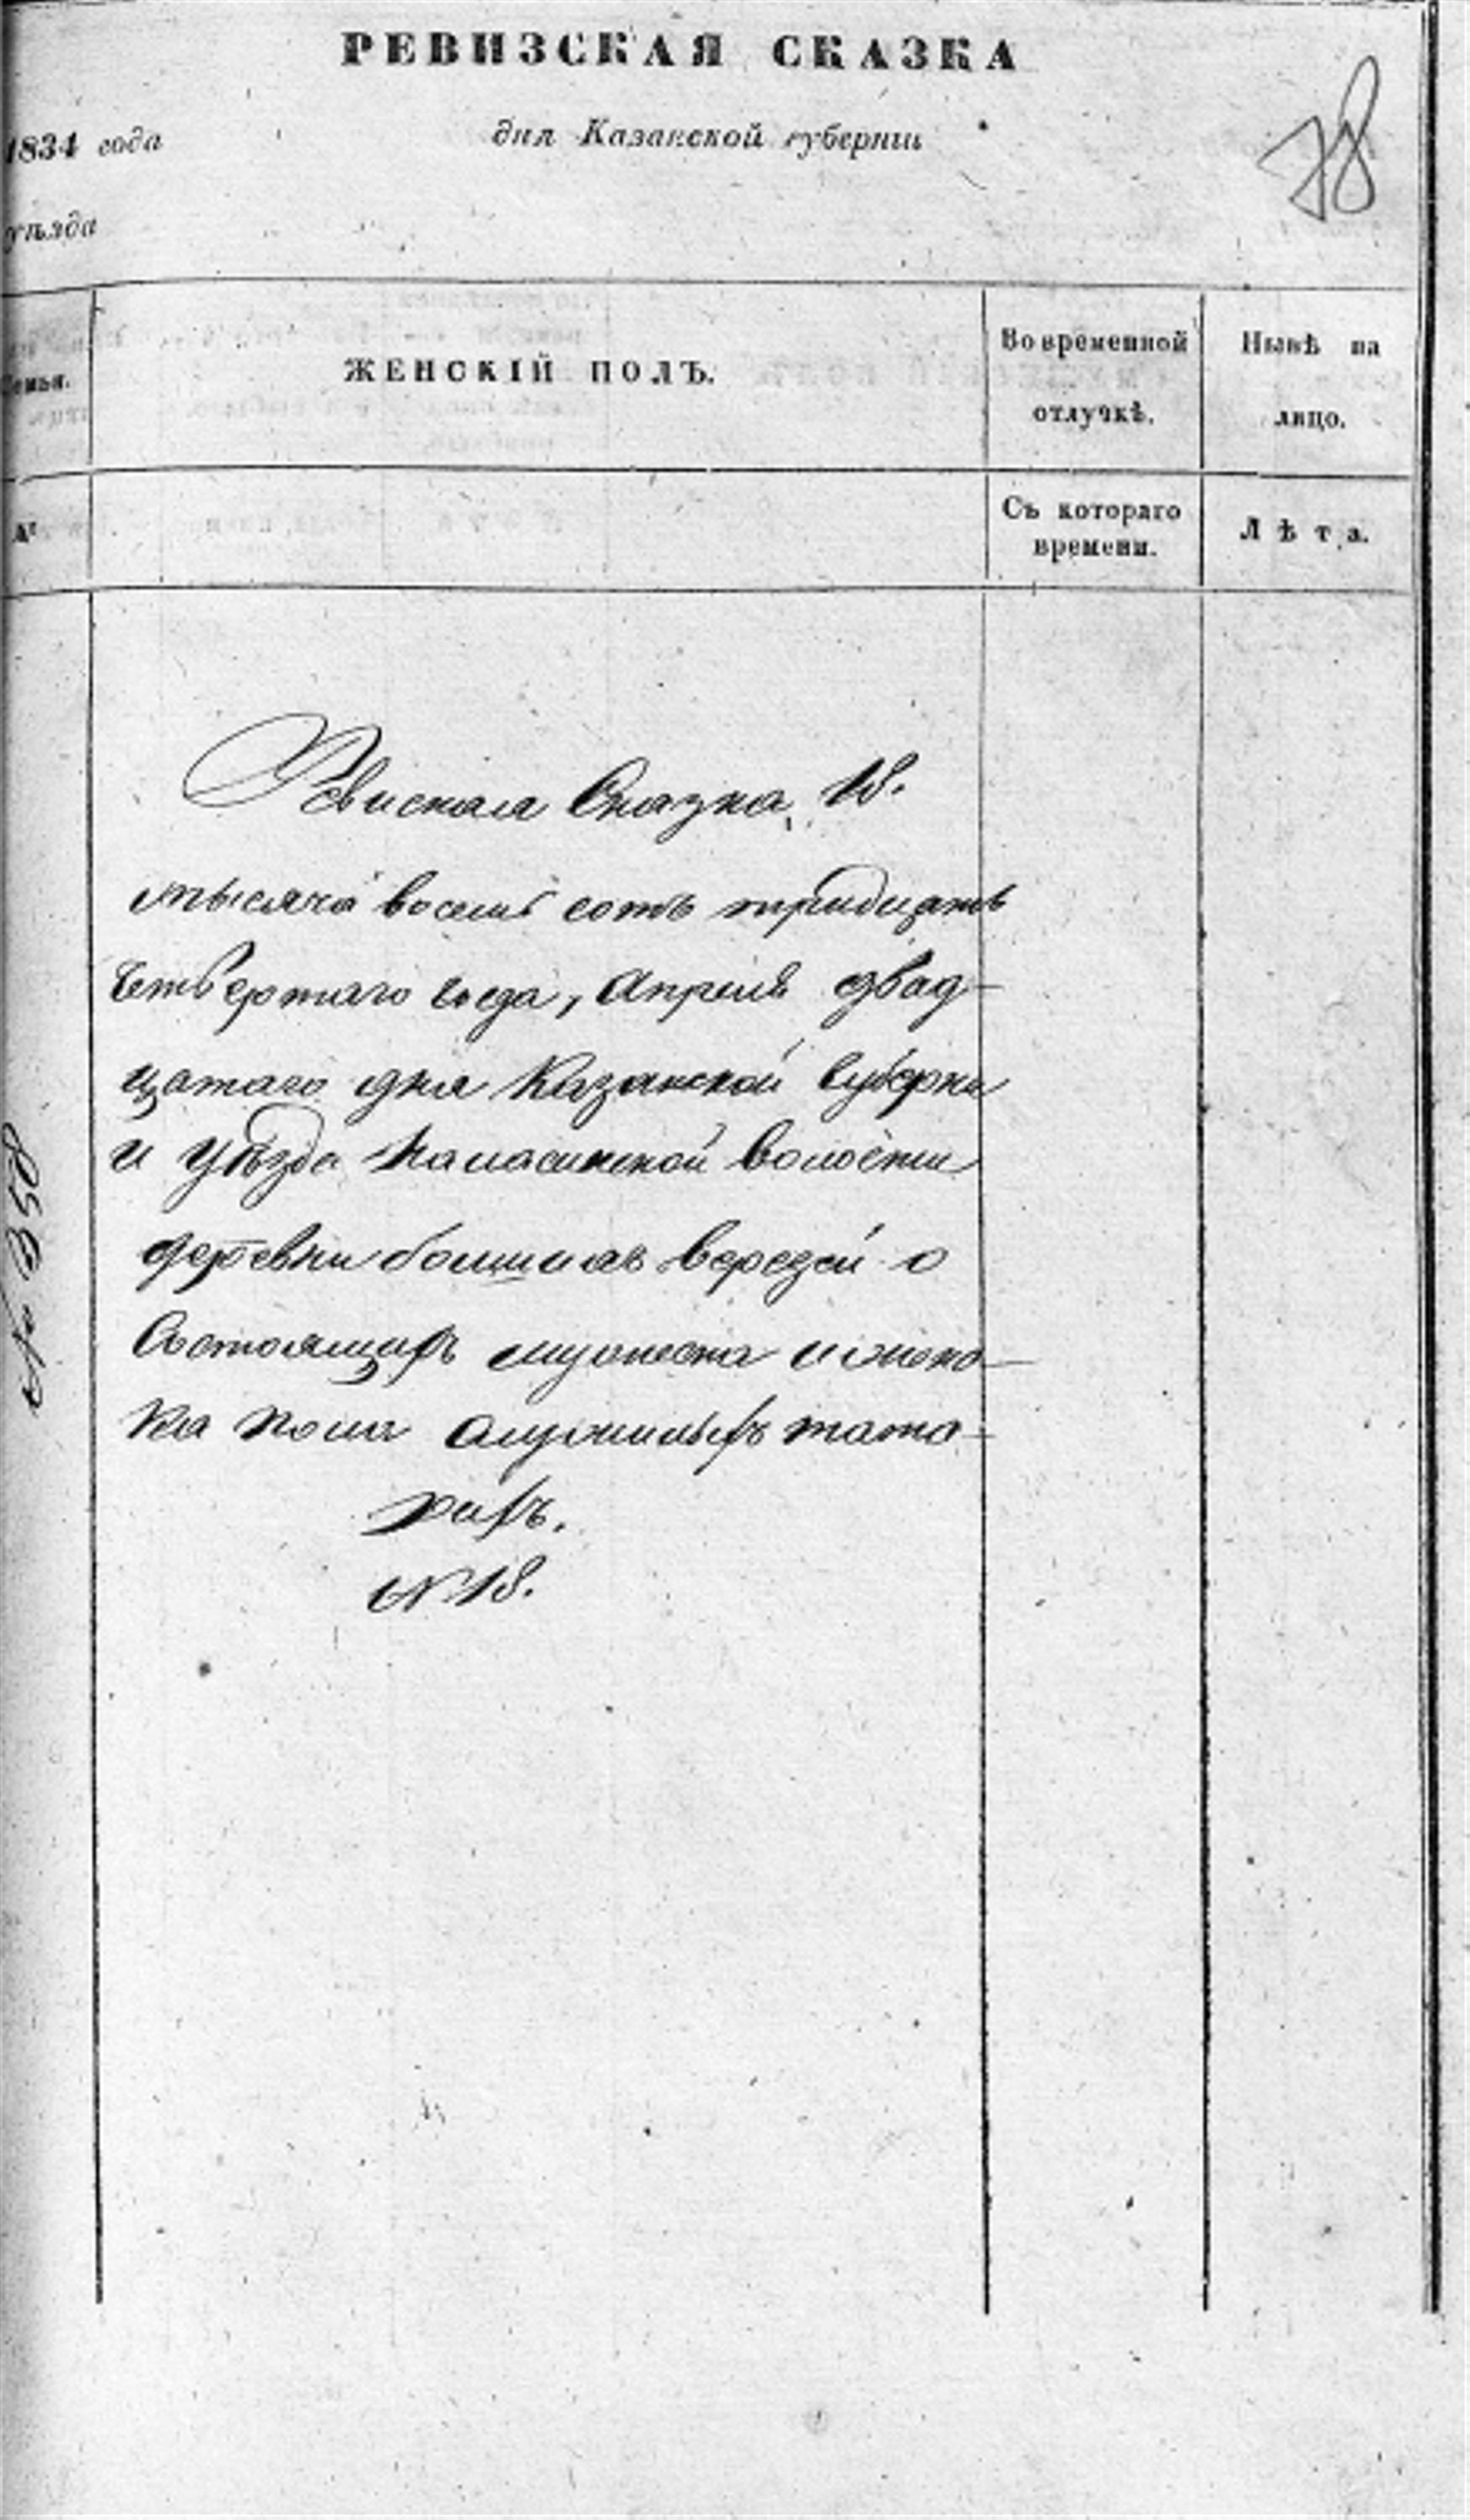 РЕВИЗСКАЯ СКАЗКА
1834 года
дня Казанской губернии
78
уѣзда
ЖЕНСКІЙ ПОЛЪ.
Во временной
отлучкѣ.
Нынѣ на
лицо.
Съ котораго
времени.
Лѣта.
Ревиская Сказка, 18.
тысяча восемь сотъ тридцать
Четвертаго года, Апреля двад-
цатаго дня Казанской Губерни
и Уѣзда волости
деревни болшихъ березей о
Состоящихъ мужеска и женс-
ка пола Служилыхъ тата-
рахъ.
N 18.
№ 358